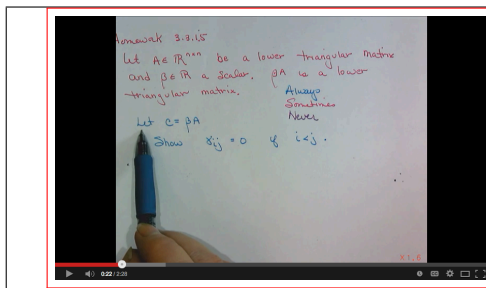 Homework 3.3.1.5
Let A ∈ ℝⁿˣⁿ be a lower triangular matrix
and β ∈ ℝ a scalar. βA is a lower
triangular matrix.
Always
Sometimes
Never
Let C = βA
Show γij = 0 if i < j .
x1.6
0:22 / 2:26